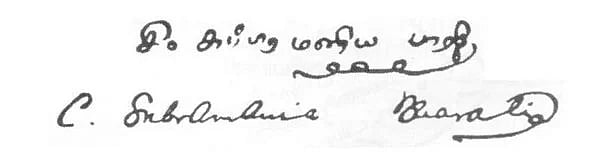 சி. சுப்பிரமணிய பாரதி
C. Subramania Bharati